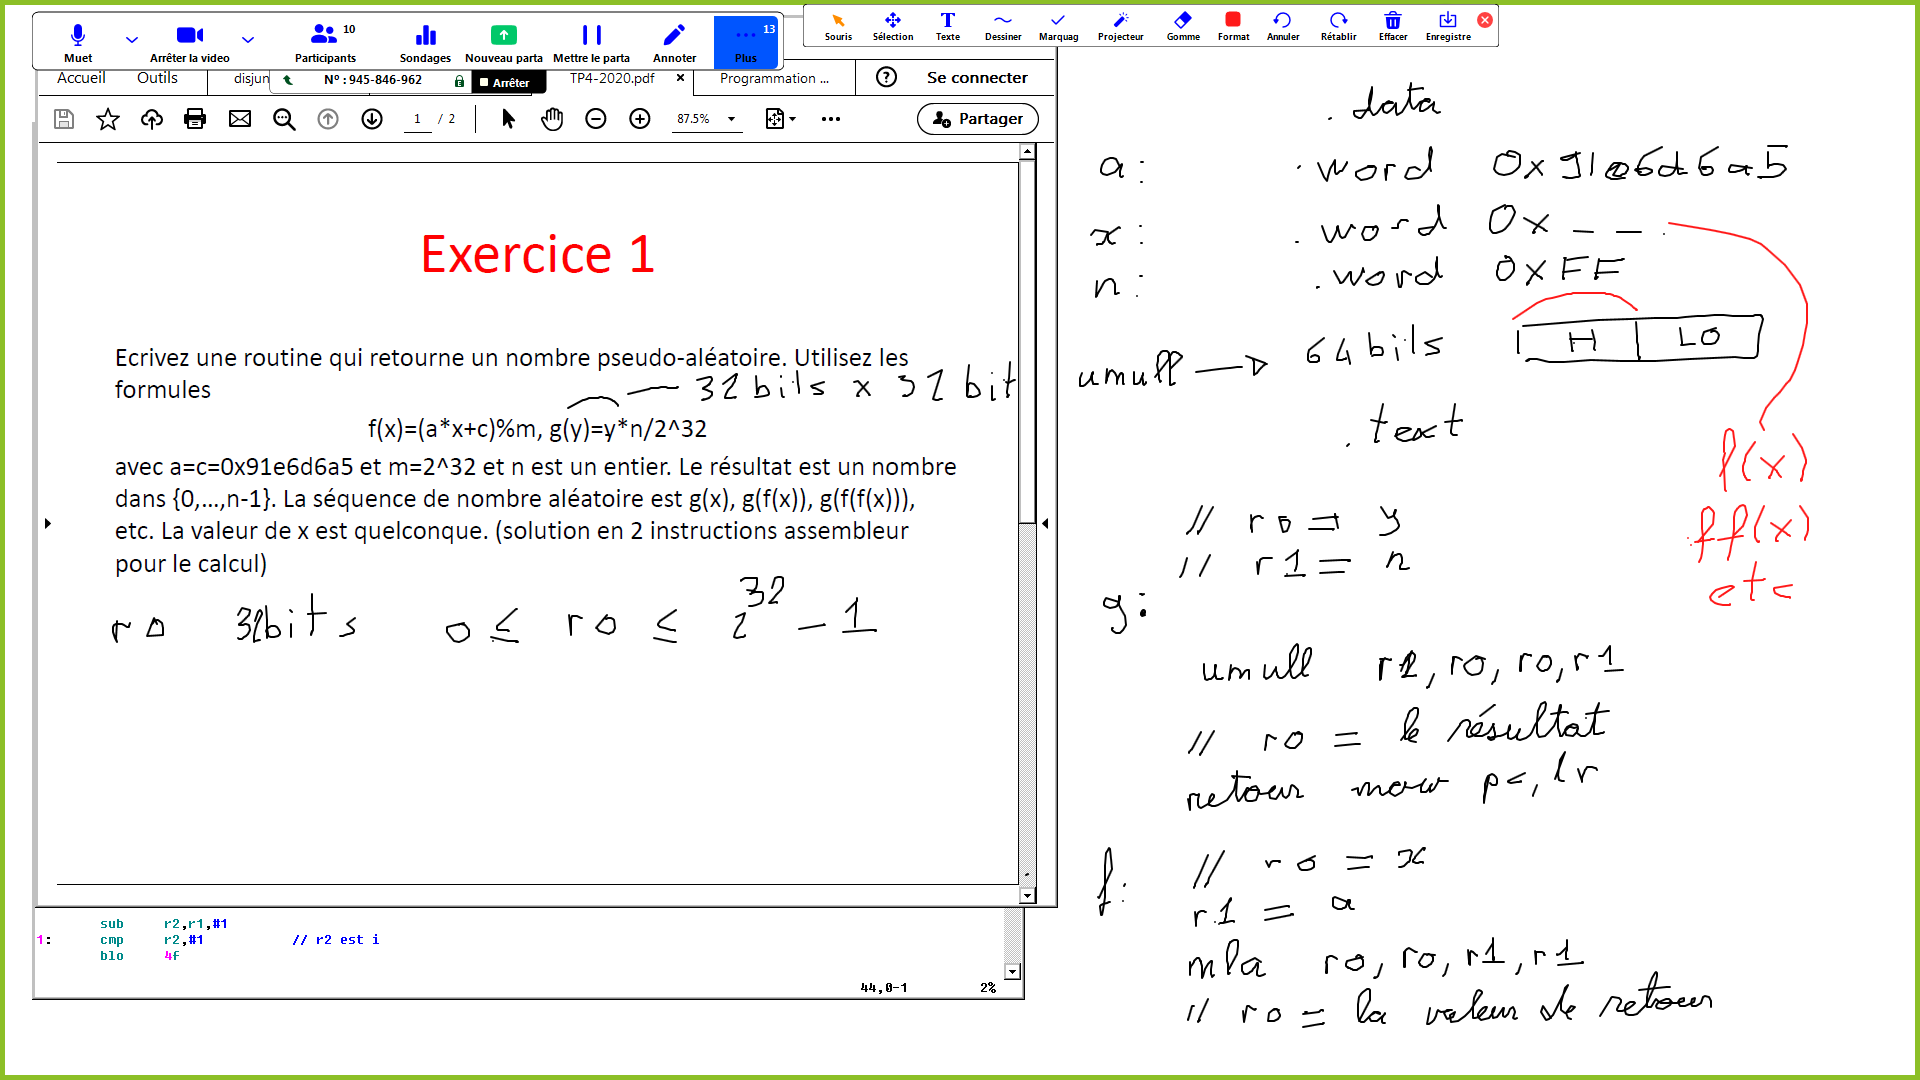 Muet
Arrêter la video
10
Participants
Sondages
Nouveau parta
Mettre le parta
Annoter
13
Plus
Souris
Sélection
Texte
Dessiner
Marquag
Projecteur
Gomme
Format
Annuler
Rétablir
Effacer
Enregistre
Accueil
Outils
disjun
N° : 945-846-962
Arrêter
TP4-2020.pdf
Programmation ...
Se connecter
1 / 2
87.5%
Partager
Exercice 1
Ecrivez une routine qui retourne un nombre pseudo-aléatoire. Utilisez les
formules
32 bits x 32 bit
f(x)=(a*x+c)%m, g(y)=y*n/2^32
avec a=c=0x91e6d6a5 et m=2^32 et n est un entier. Le résultat est un nombre
dans {0,...,n-1}. La séquence de nombre aléatoire est g(x), g(f(x)), g(f(f(x))),
etc. La valeur de x est quelconque. (solution en 2 instructions assembleur
pour le calcul)
r0 32bits 0 ≤ r0 ≤ 2^32 - 1
sub r2,r1,#1
1: cmp r2,#1 // r2 est i
blo 4f
44,0-1 2%
.data
a: .word 0x91e6d6a5
x: .word 0x _ _ .
n: .word 0xFF
umull → 64 bits H LO
.text
f(x)
ff(x)
etc
// r0 = y
// r1 = n
g:
umull r2, r0, r0, r1
// r0 = le résultat
retour mov pc, lr
f: // r0 = x
r1 = a
mla r0, r0, r1, r1
// r0 = la valeur de retour